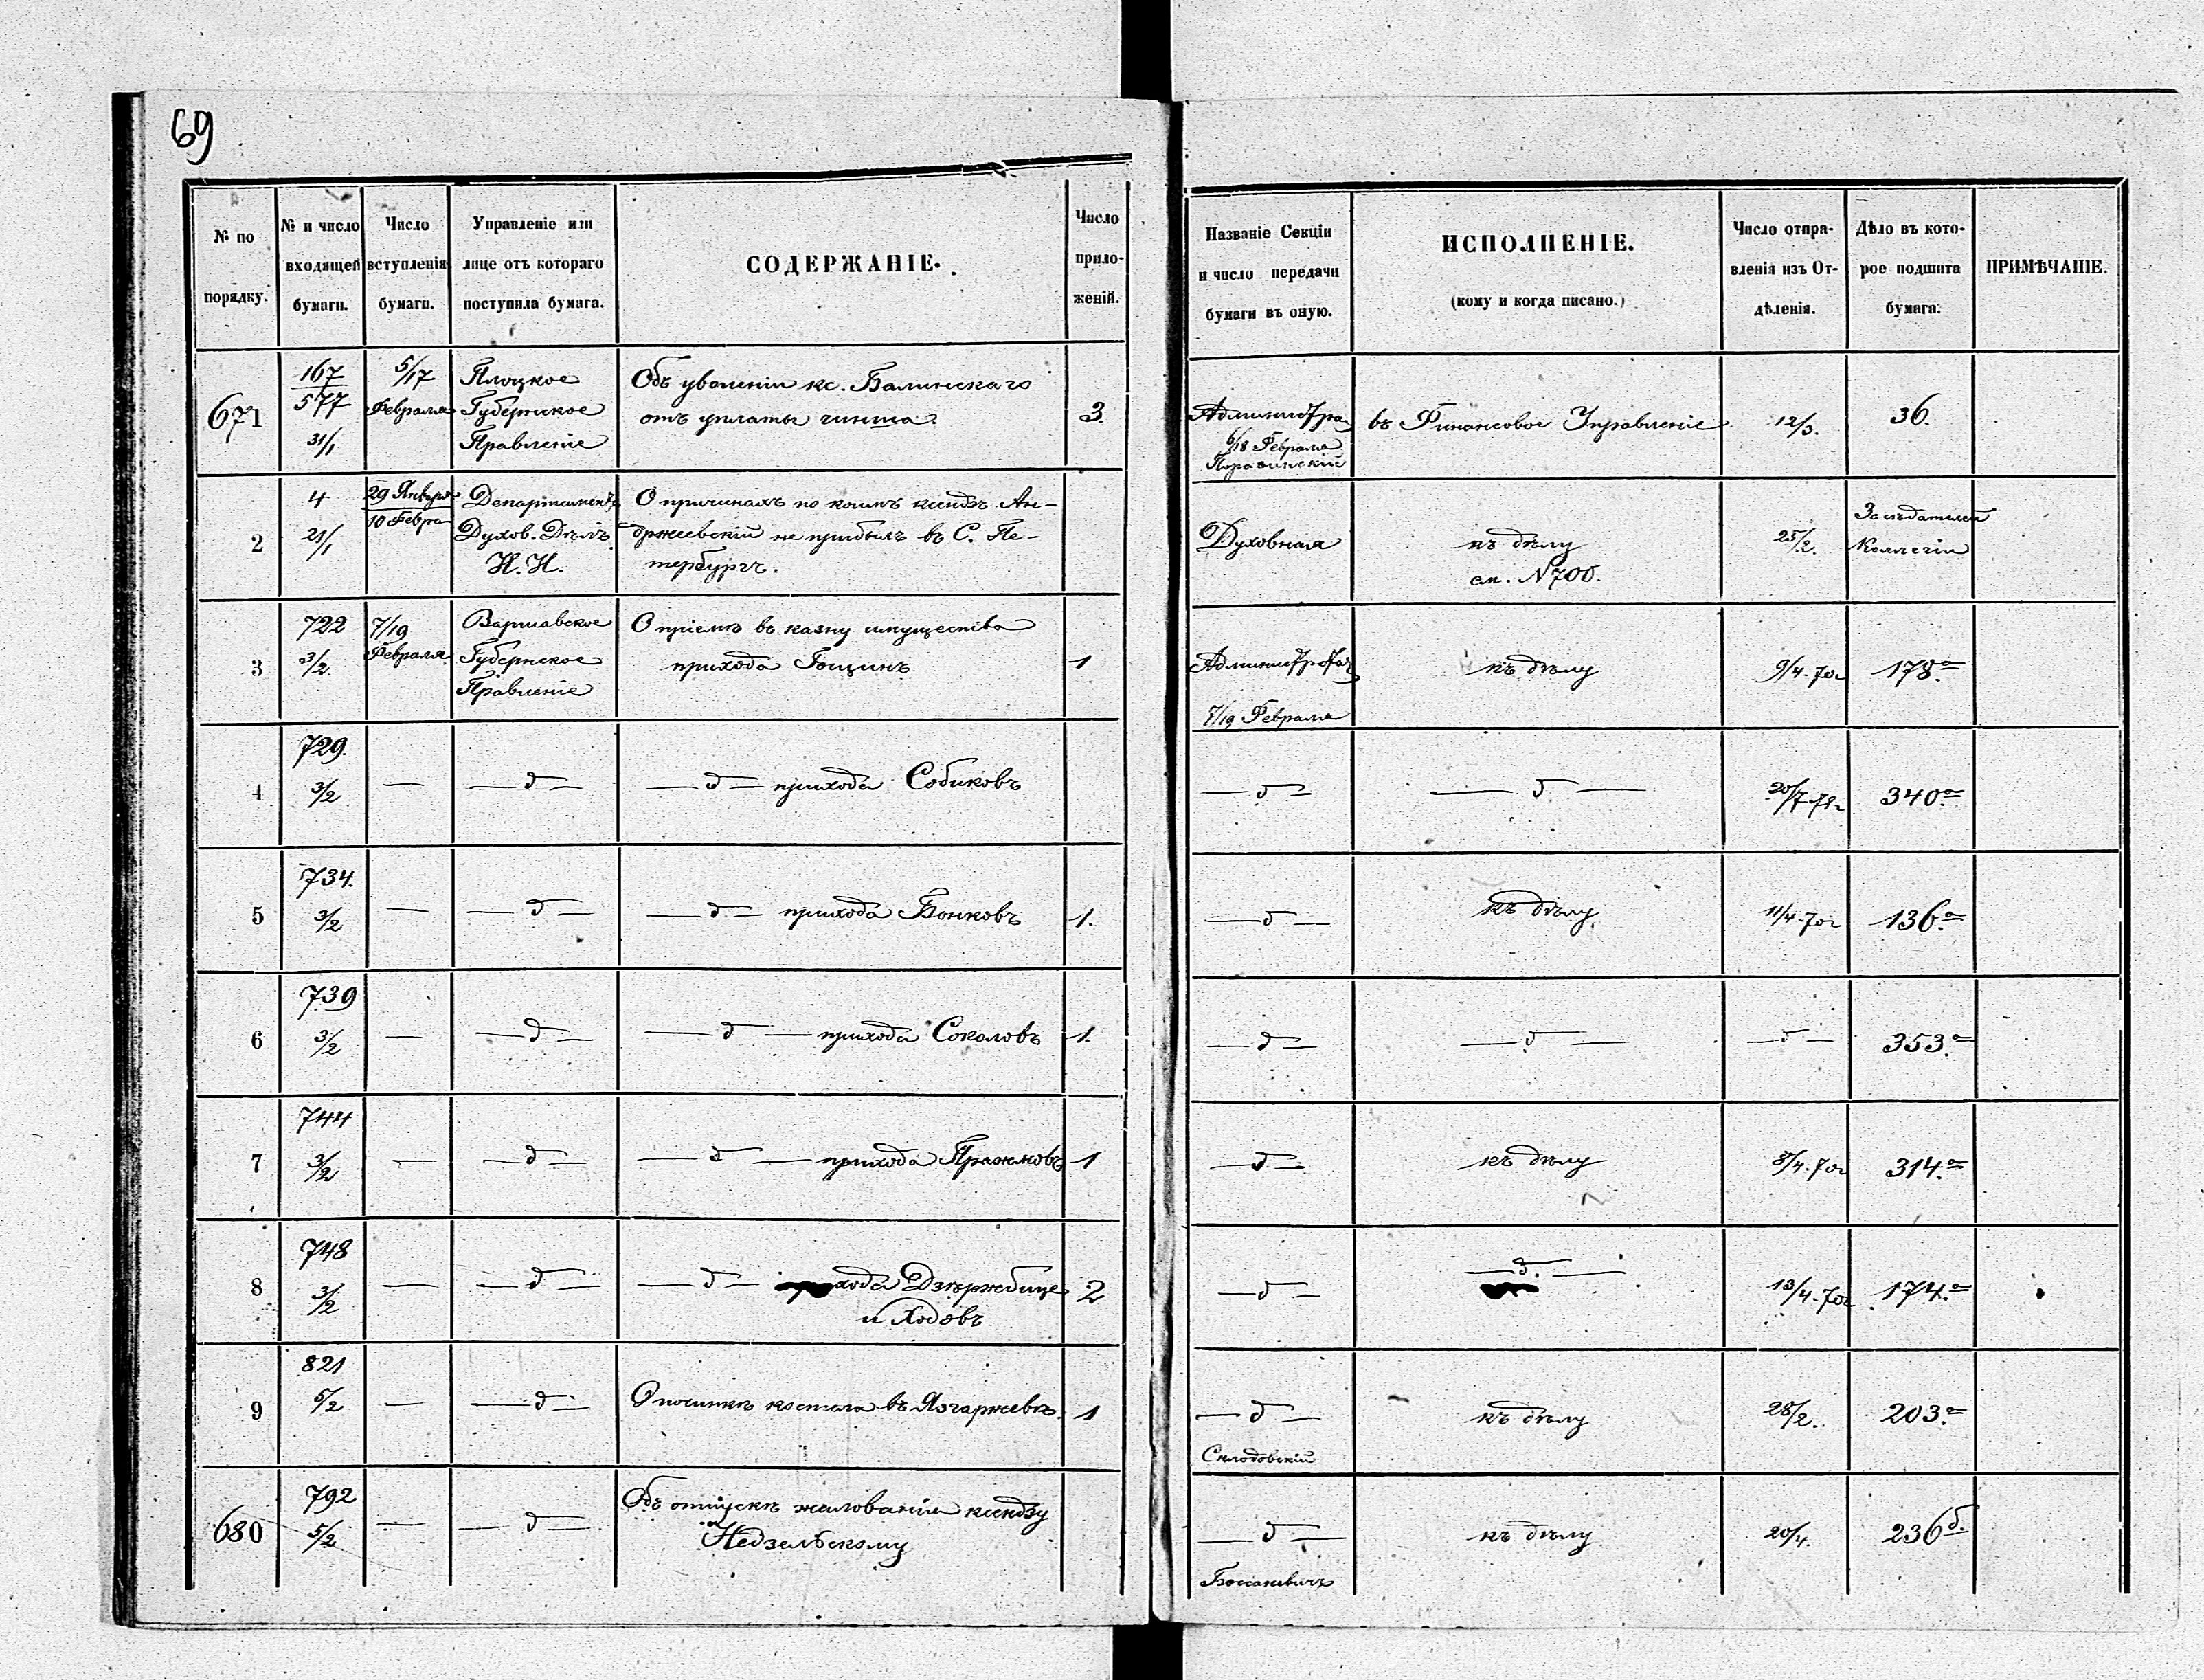 69
№ по порядку.
№ и число входящей бумаги.
Число вступленія бумаги.
Управленіе или лице отъ котораго поступила бумага.
СОДЕРЖАНІЕ.
Число приложеній.
Названіе Секціи и число передачи бумаги въ оную.
ИСПОЛНЕНІЕ.
(кому и когда писано.)
Число отправленія изъ Отдѣленія.
Дѣло въ которое подшита бумага.
ПРИМѢЧАНІЕ.
671
167
577
31/1
5/17
Февраля
Плоцкое
Губернское
Правленіе
Объ уволеніи кс. Балинскаго
отъ уплаты чинша.
3.
6/18 Февраля
въ Финансовое Управленіе
12/3.
36.
2
4
21/1
29 Января
10 Февра
Департамент
Духов. Дѣлъ
И. И.
О причинахъ по коимъ ксендзъ Ан-
држеевскій не прибылъ въ С. Пе-
тербургъ.
Духовная
къ дѣлу
см. N 700.
25/2.
Засѣдателей
Коллегіи
3
722
3/2.
7/19
Февраля
Варшавское
Губернское
Правленіе
О пріемѣ въ казну имущества
прихода Гощинъ
1
7/19 Февраля
къ дѣлу
9/4. 70г
178.а
4
729.
3/2
— — д — — д — прихода Собиковъ
— д —
— д —
20/7
340.а
5
734.
3/2
— — д — — д — прихода Бонковъ
1.
— д —
къ дѣлу.
11/4. 70г
136.а
6
739
3/2
— — д — — д — прихода Соколовъ
1.
— д —
— д —
— д —
353.а
7
744
3/2
— — д — — д — прихода Пражмовъ
1
— д —
къ дѣлу
8/4. 70г
314.а
8
748
3/2
— — д — — д — хода Дзѣржбице
и Ходовъ
2
— д —
— д. —
13/4. 70г
174.а
9
821
5/2
— — д — О починкѣ костела въ Язгаржевѣ.
1
— д —
Склодовскій
къ дѣлу
28/2.
203.а
680
792
5/2
— — д — Объ отпускѣ жалованія ксендзу
Недзельскому
— д —
къ дѣлу
20/4.
236 б.